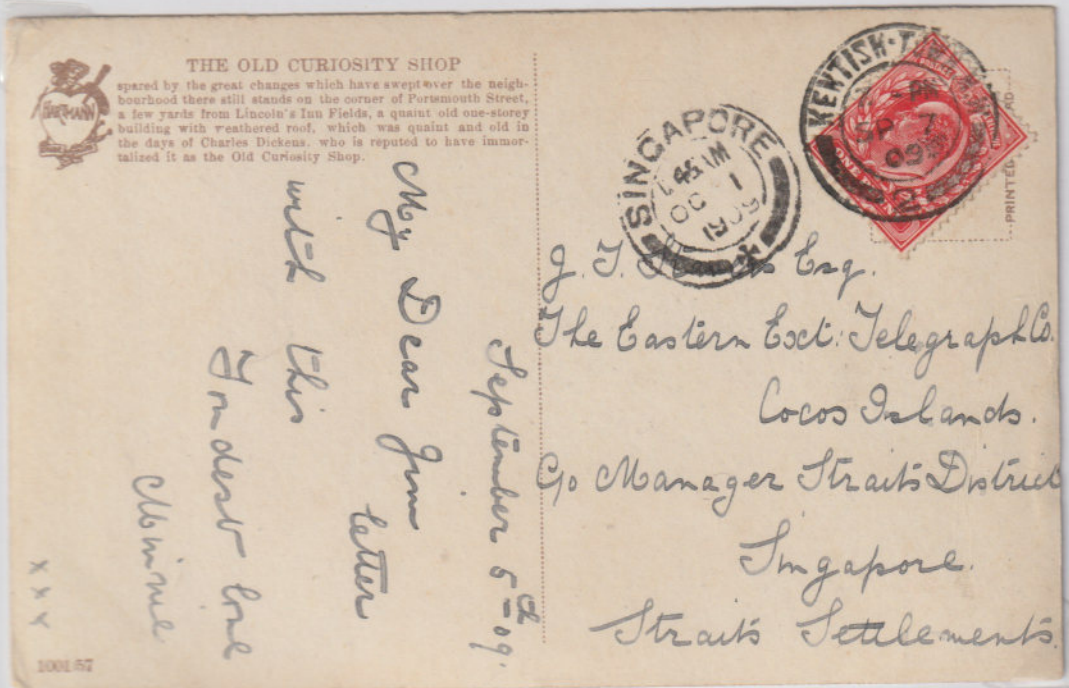 THE OLD CURIOSITY SHOP
spared by the great changes which have swept over the neigh-
bourhood there still stands on the corner of Portsmouth Street,
a few yards from Lincoln's Inn Fields, a quaint old one-storey
building with weathered roof, which was quaint and old in
the days of Charles Dickens, who is reputed to have immor-
talized it as the Old Curiosity Shop.
HARTMANN
September 5th 09.
My Dear Jim
letter
with this
Fondest love
Minnie
x x x
1001/57
SINGAPORE
AM
OC 1
1909
KENTISH-T
SP 7
09
ONE PENNY
PRINTED
J. T. Esq.
The Eastern Ext: Telegraph Co.
Cocos Islands.
C/o Manager Straits District
Singapore.
Straits Settlements.